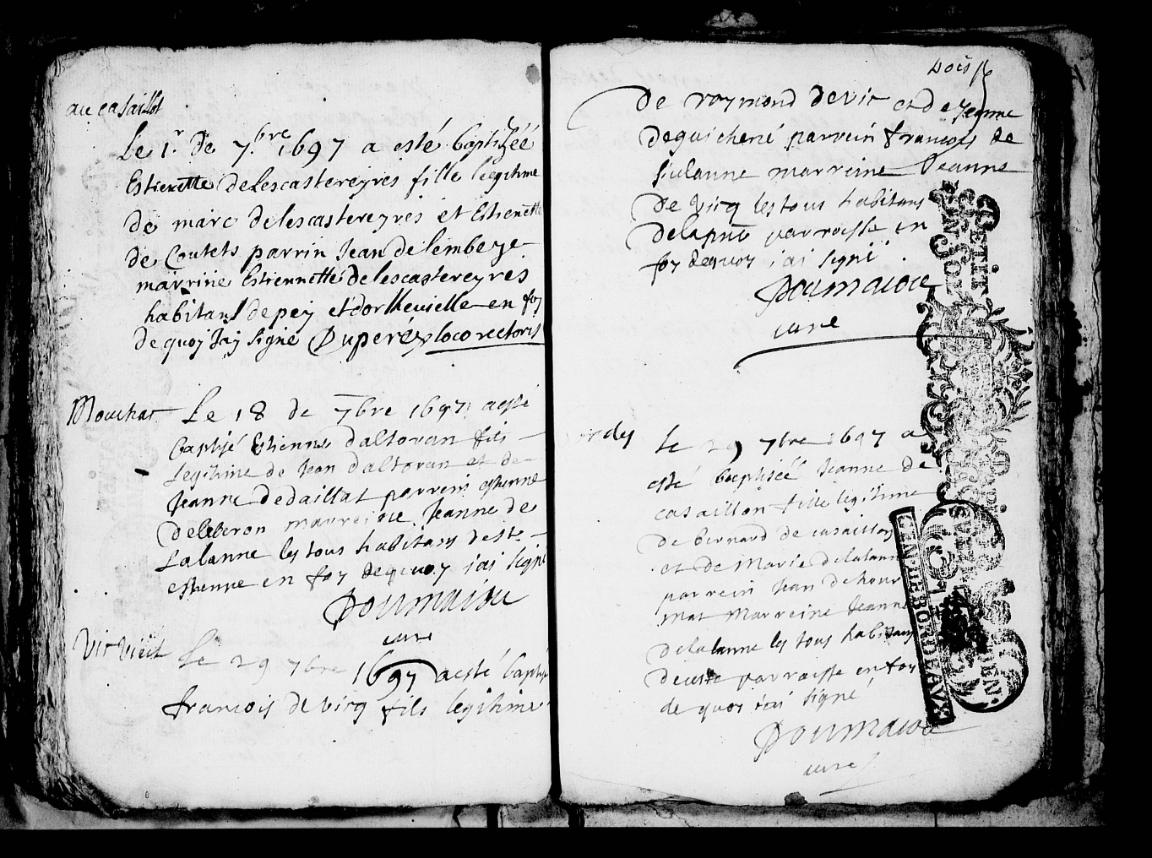 au casaillot
Le 1r de 7bre 1697 a esté baptizéé
Estienette de Lescastereyres fille legitime
de marc de lescastereyres et Estienette
de Coutets parrin Jean de lembeye
marrine Estiennette de lescastereyres
habitans de pey et dortheuielle en foy
de quoy Jay signé Duperé loco rectoris
Mouchat Le 18 de 7bre 1697 a esté
baptisé Estienne daltoran fils
legitime de Jean daltoran et de
Jeanne dedaillat parrein estienne
deleberon marreine Jeanne de
Lalanne les tous habitans de st
estienne en foy dequoy j'ai signé
Doumaiou
curé
Vic Vieil Le 29 7bre 1697 a esté baptisé
francois de vicq fils legitime
de raymond de vic et de Jeanne
deguicherré parrein francois de
marreine Jeanne
de vicq les tous habitans
parroisse en
foy dequoy j'ai signé
Doumaiou
curé
Le 29 7bre 1697 a
esté baptiséé Jeanne de
casaillon fille legitime
de bernard de casaillon
et de Marie delalanne
parrein Jean de hour
mat Marreine Jeanne
delalanne les tous habitans
parroisse en foy
de quoy j'ai signé
Doumaiou
curé
PETIT
GEN. DE BORDEAUX